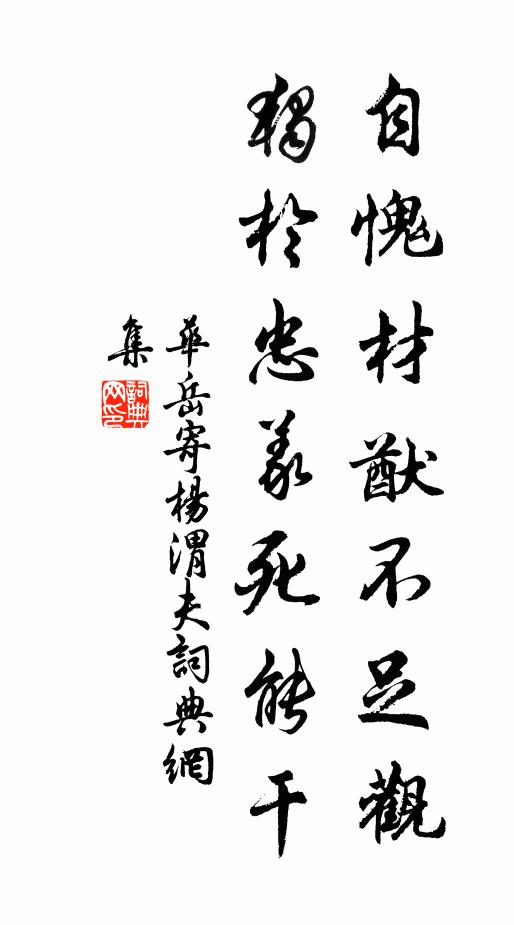 自愧材猷不足觀
獨於忠義死能干
華岳寄楊渭夫詞典網
集
詞典
网印